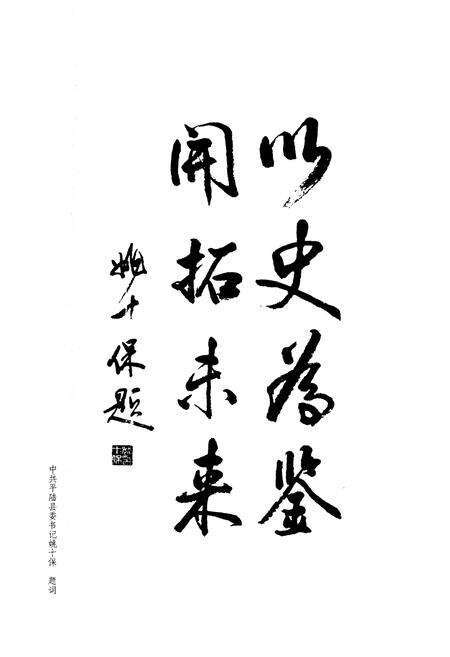 以史为鉴
開拓未来
姚十保题
中共平陆县委书记姚十保 题词